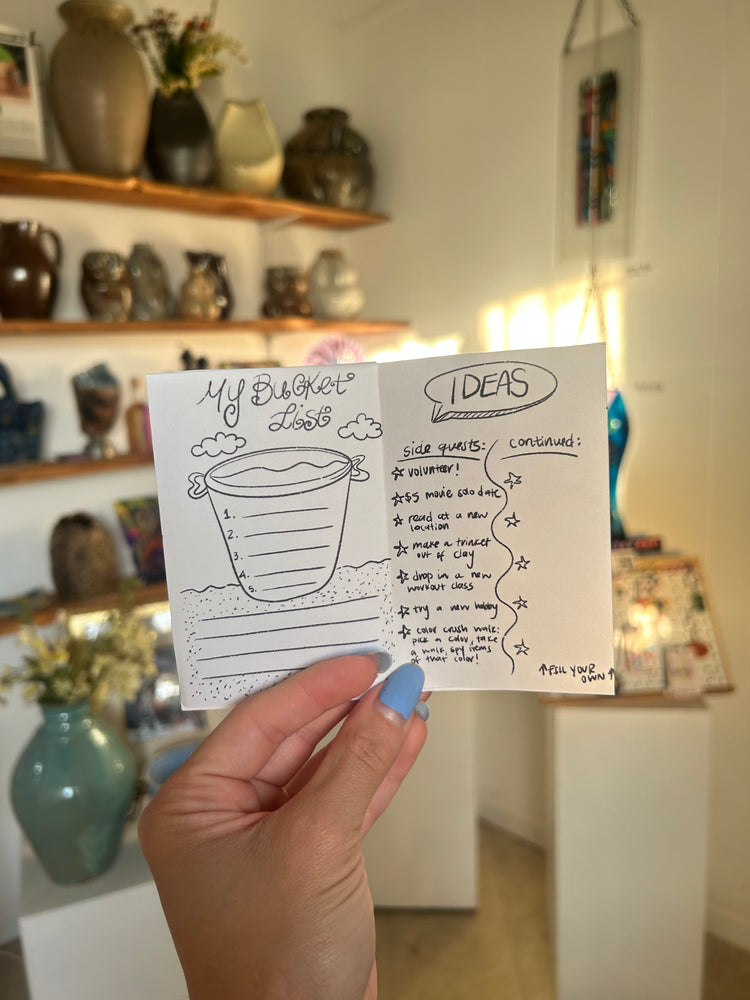 My Bucket
List
1.
2.
3.
4.
5.
IDEAS
side quests:
volunteer!
$5 movie solo date
read at a new
location
make a trinket
out of clay
drop in a new
workout class
try a new hobby
color crush walk:
pick a color, take
a walk, spy items
of that color!
continued:
↑FILL YOUR
OWN↑